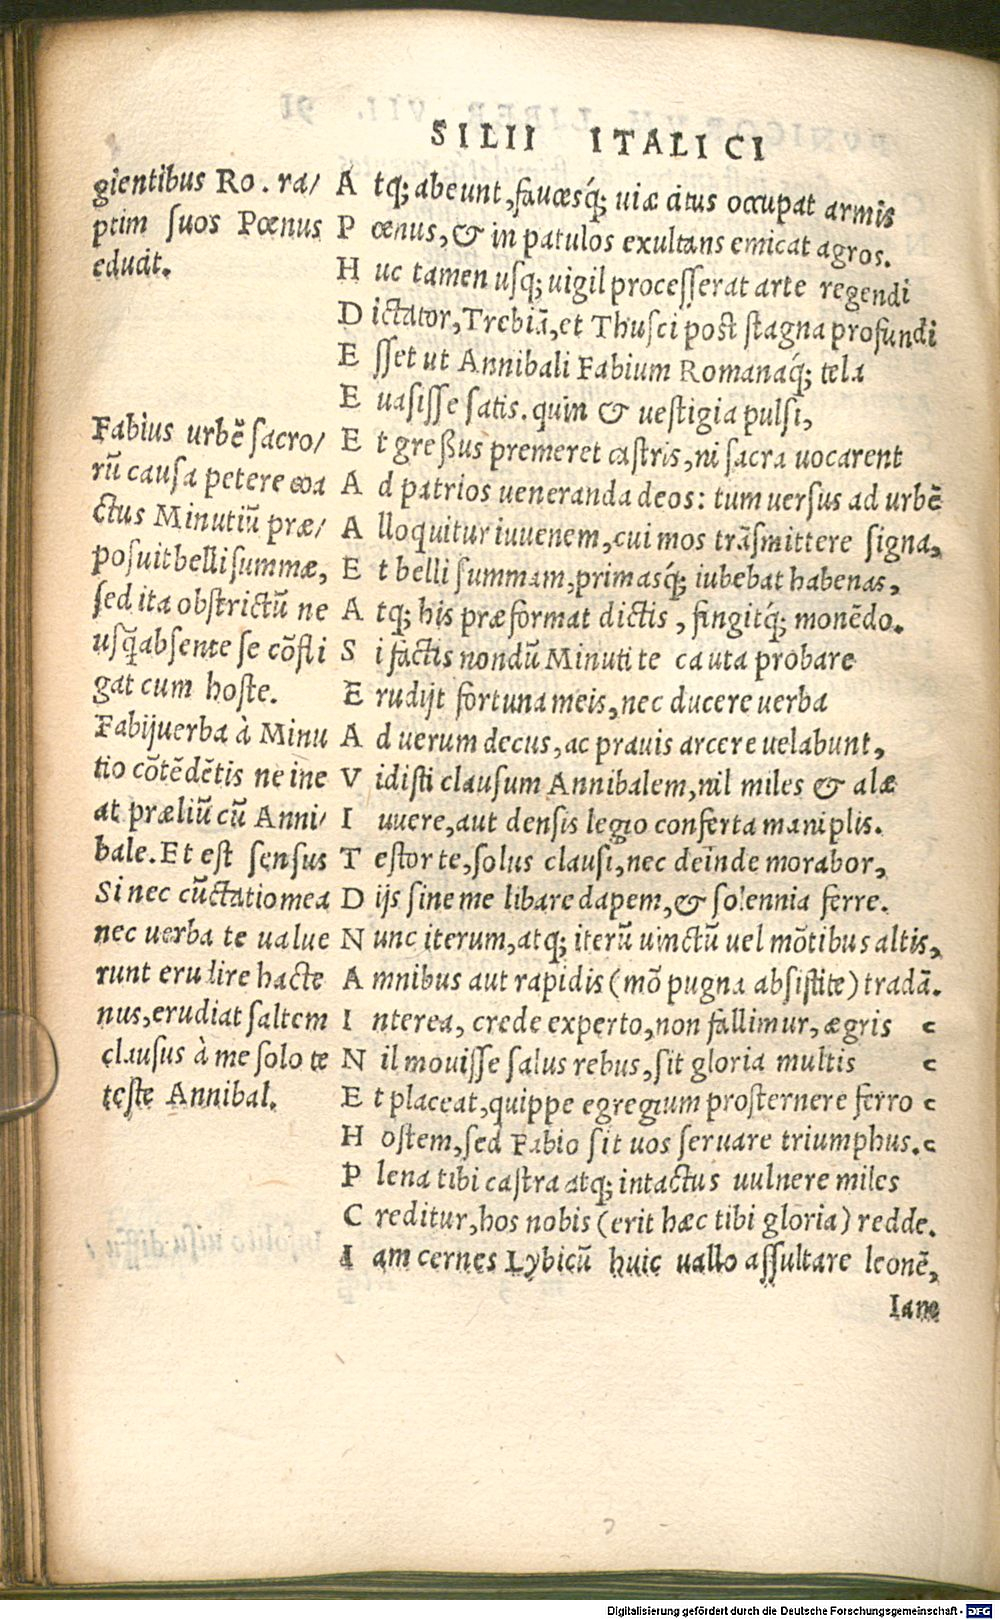 SILII ITALICI
gientibus Ro. ra/
ptim suos Pœnus
educit.
Fabius urbē sacro/
rū causa petere coa
ctus Minutiū præ/
posuit belli summæ,
sed ita obstrictū ne
usq̃ absente se cōfli
gat cum hoste.
Fabij uerba à Minu
tio cōtēdētis ne ine
at præliū cū Anni/
bale. Et est sensus
Si nec cūctatio mea
nec uerba te ualue
runt erudire hacte
nus, erudiat saltem
clausus à me solo te
teste Annibal.
Atq; abeunt, faucesq́; uiæ citus occupat armis
Pœnus, & in patulos exultans emicat agros.
Huc tamen usq; uigil processerat arte regendi
Dictator, Trebiā, et Thusci post stagna profundi
Esset ut Annibali Fabium Romanaq́; tela
Euasisse satis. quin & uestigia pulsi,
Et greßus premeret castris, ni sacra uocarent
Ad patrios ueneranda deos: tum uersus ad urbē
Alloquitur iuuenem, cui mos trāsmittere signa,
Et belli summam, primasq́; iubebat habenas,
Atq; his præformat dictis, fingitq́; monēdo.
Si factis nondū Minuti te cauta probare
Erudijt fortuna meis, nec ducere uerba
Ad uerum decus, ac prauis arcere uelabunt,
Vidisti clausum Annibalem, nil miles & alæ
Iuuere, aut densis legio conferta maniplis.
Testor te, solus clausi, nec deinde morabor,
Dijs sine me libare dapem, & solennia ferre.
Nunc iterum, atq; iterū uinctū uel mōtibus altis,
Amnibus aut rapidis (mō pugna absistite) tradā.
Interea, crede experto, non fallimur, ægris c
Nil mouisse salus rebus, sit gloria multis c
Et placeat, quippe egregium prosternere ferro c
Hostem, sed Fabio sit uos seruare triumphus. c
Plena tibi castra atq; intactus uulnere miles
Creditur, hos nobis (erit hæc tibi gloria) redde.
Iam cernes Lybicū huic uallo assultare leonē,
Iam
Digitalisierung gefördert durch die Deutsche Forschungsgemeinschaft - DFG